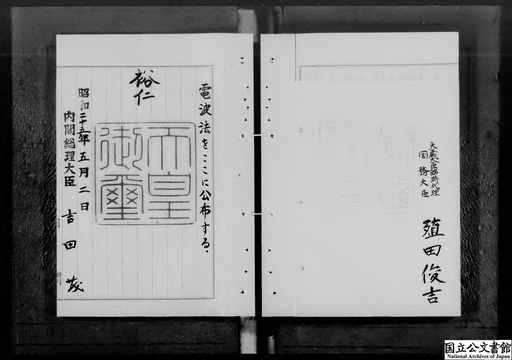 電波法をここに公布する。
裕仁
天皇御璽
昭和二十五年五月二日
内閣総理大臣 吉田茂
大蔵大臣臨時代理
国務大臣 殖田俊吉
国立公文書館
National Archives of Japan